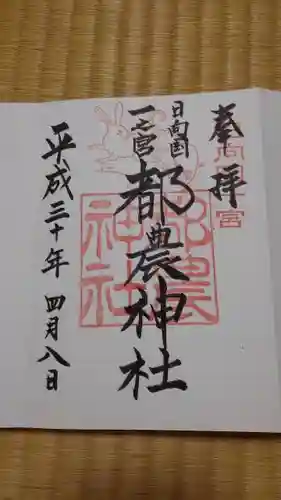 奉拝
日向国
一之宮
都農神社
平成三十年 四月八日
日向国一宮
都農神社